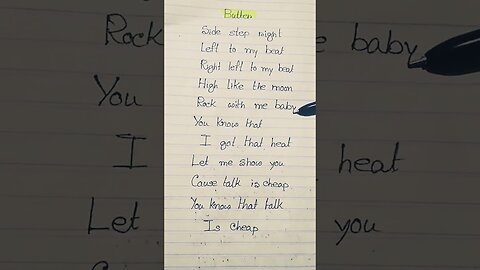 Butter
Side step right
Left to my beat
Right left to my beat
High like the moon
Rock with me baby
You know that
I got that heat
Let me show you
Cause talk is cheap
You know that talk
Is cheap